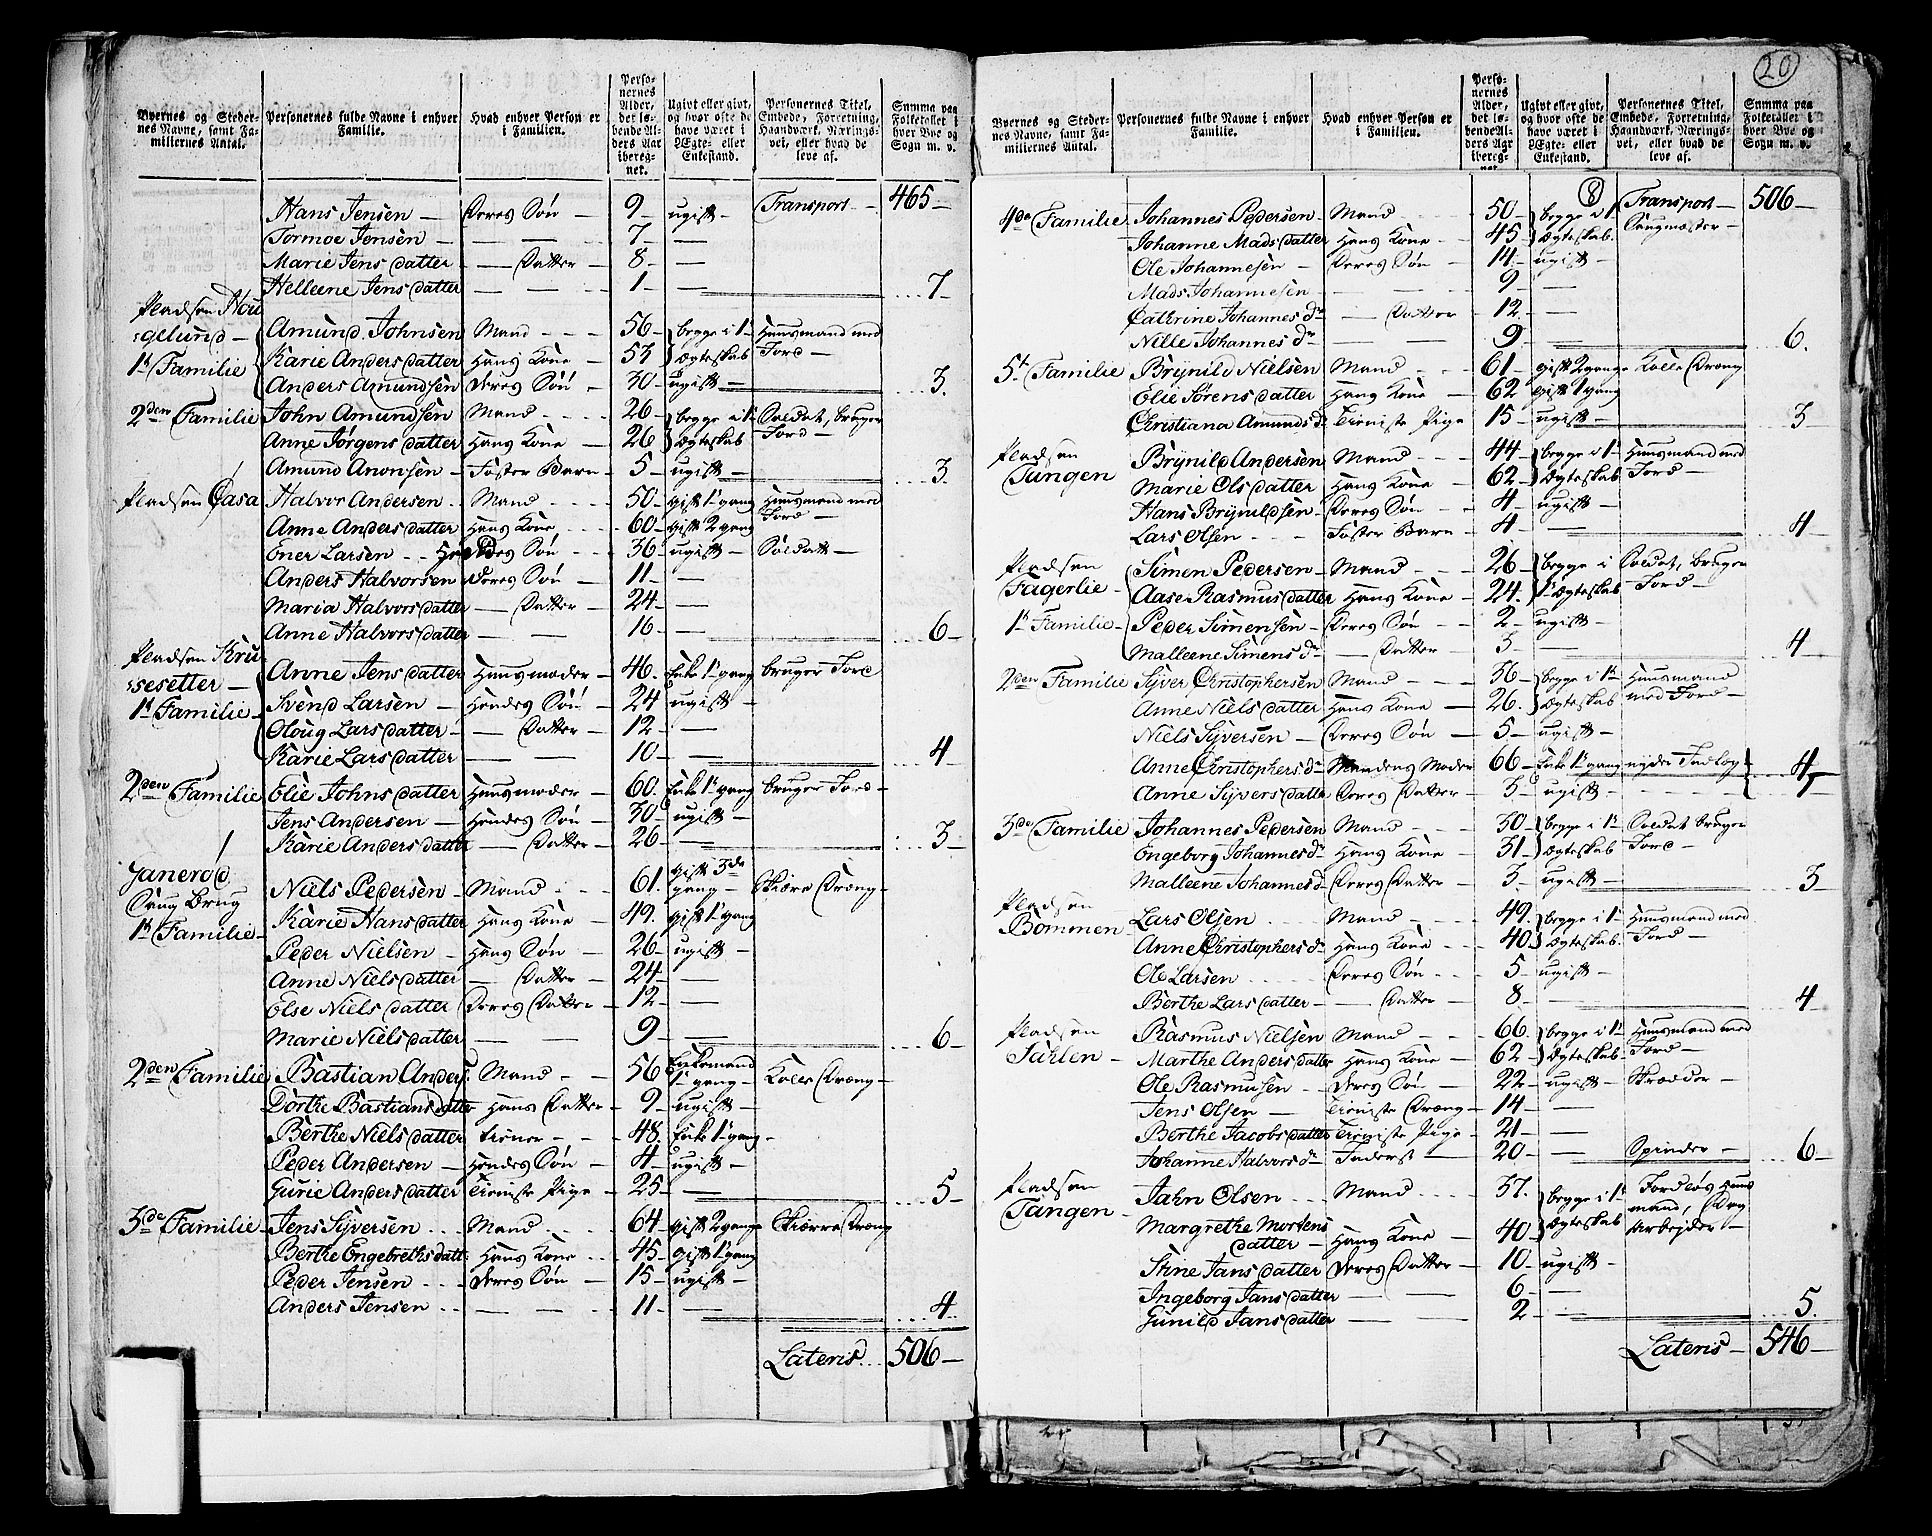 20
Byernes og Steder-
nes Navne, samt Fa-
miliernes Antal.
Personernes fulde Navne i enhver
Familie.
Hvad enhver Person er
i Familien.
Perso-
nernes
Alder,
det lø-
bende Al-
ders Aar
ibereg-
net.
Ugivt eller givt,
og hvor ofte de
have været i
Ægte- eller
Enkestand.
Personernes Titel,
Embede, Forretning,
Haandværk, Nærings-
vei, eller hvad de
leve af.
Summa paa
Folketallet i
hver Bye og
Sogn m. v.
Transport — 465 —
Hans Jensen — Deres Søn — 9 — ugift —
Tormoe Jensen — — — 7 — —
Marie Jens datter — Datter — 8 — —
Helleene Jens datter — — 1 — — 7 —
Pladsen Hou
gelund —
1t Familie
Amund Johnsen Mand 56 begge i 1t Huusmand med
Karie Anders datter Hans Kone — 53 Ægteskab Jord —
Anders Amundsen Deres Søn — 30 — ugift — 3.
2den Familie John Amundsen Mand 26 — begge i 1t Soldat, bruger
Anne Jørgens datter Hans Kone — 26 Ægteskab Jord —
Amund Aronsen — Foster Barn — 5 — ugift — 3.
Pladsen Casa Halvor Andersen Mand 50 — gift 1t gang Huusmand med
Jord —
Anne Anders datter Hans Kone 60 — gift 2 gang
Ener Larsen Hendes Søn 36 — ugift — Soldatt —
Anders Halvorsen Deres Søn 11 — —
Maria Halvors datter — Datter — 24 — —
Anne Halvors datter — — 16 — — 6 —
Pladsen Kru
sesetter —
1t Familie
Anne Jens datter Huusmoder — 46. Enke 1t gang bruger Jord
Svend Larsen — Hendes Søn 24 ugift —
Oloug Lars datter — — Datter — 12 — —
Karie Lars datter — — 10 — — 4
2den Familie Elie Johns datter Huusmoder — 60. Enke 1t gang bruger Jord —
Jens Andersen — Hendes Søn — 30 — ugift —
Karie Anders datter — Datter — 26 — — 3 —
Janerød
Saug Brug
1t Familie —
Niels Pedersen — Mand 61. gift 3de
gang — Kiøre Dreng —
Karie Hans datter Hans Kone 49. gift 1t gang
Peder Nielsen — Hans Søn — 26 — ugift —
Anne Niels datter — Datter — 24 —
Else Niels datter Deres Datter — 12 — —
Marie Niels datter — — 9 — — 6 —
2den Familie Bastian Anders. Mand — 56 Enkemand
1t gang — Kolle Dreng —
Dorthe Bastians datter Hans Datter — 9 — ugift —
Berthe Niels datter tiener 48. Enke 1t gang —
Peder Andersen — Hendes Søn — 4 — ugift —
Gurie Anders datter Tieniste Pige — 25 — — 5 —
3de Familie — Jens Syversen Mand 64 — gift 2 gange Kiørre Dreng
Berthe Engebreths datt: Hans Kone 45 — gift 1t gang
Peder Jensen Deres Søn — 15 — ugift —
Anders Jensen — — 11 — — 4 —
Lateris 506 —
Byernes og Steder-
nes Navne, samt Fa-
miliernes Antal.
Personernes fulde Navne i enhver
Familie.
Hvad enhver Person er
i Familien.
Perso-
nernes
Alder,
det lø-
bende Al-
ders Aar
ibereg-
net.
Ugivt eller givt,
og hvor ofte de
have været i
Ægte- eller
Enkestand.
Personernes Titel,
Embede, Forretning,
Haandværk, Nærings-
vei, eller hvad de
leve af.
Summa paa
Folketallet i
hver Bye og
Sogn m. v.
8
Transport — 506 —
4de Familie Johannes Pedersen — Mand 50 — begge i 1t Saugmester —
Johanne Mads datter Hans Kone — 45 Ægteskab.
Ole Johannesen — Deres Søn — 14 — ugift —
Mads Johannesen — — — 9 — —
Cathrine Johannes dr — Datter — 12. —
Nille Johannes dr — — 9 — — 6.
5t Familie Brynild Nielsen Mand 61 — gift 2 gange Kolle Dreng
Elie Sørens datter Hans Kone — 62 gift 1 gang
Christiana Amunds d. Tieniste Pige 15 — ugift — 3
Pladsen
Tangen
Brynild Andersen Mand 44 begge i 1t Huusmand med
Marie Ols datter Hans Kone — 62 — Ægteskab Jord —
Hans Brynildsen — Deres Søn — 4 — ugift —
Lars Olsen — Foster Barn — 4 — — 4
Pladsen
Fagerlie —
1t Familie —
Simen Pedersen — Mand 26 — begge i Soldat, bruger
Aase Rasmus datter Hans Kone — 24. 1t Ægteskab Jord —
Peder Simensen — Deres Søn — 2 — ugift —
Malleene Simens dr — Datter — 3 — — 4 —
2den Familie Syver Christophersen Mand — 36 — begge i 1t Huusmand
Anne Niels datter Hans Kone — 26. Ægteskab med Jord —
Niels Syversen — Deres Søn — 5 — ugift —
Anne Christophers dr Mandens Moder 66 — Enke 1t gang nyder Indlæg
Anne Syvers datter Deres Datter — 3 — ugift —
3de Familie Johannes Pedersen Mand — 30 — begge i 1t Soldat bruger
Engeborg Johannes dr Hans Kone — 31 — Ægteskab Jord —
Malleene Johannes d. Deres Datter — 3 — ugift — 3
Pladsen
Bommen —
Lars Olsen Mand — 49. begge i 1t Huusmand med
Anne Christophers dr Hans Kone — 40 Ægteskab. Jord —
Ole Larsen Deres Søn 5 — ugift —
Berthe Lars datter — — Datter — 8 — — 4
Pladsen
Rasmus Nielsen Mand — 66 begge i 1t Huusmand med
Marthe Anders datter Hans Kone — 62 — Ægteskab Jord —
Ole Rasmusen — Deres Søn — 22 — ugift — Skredder —
Jens Olsen — Tieniste Dreng — 14 — —
Berthe Jacobs datter Tieniste Pige — 21 — —
Johanne Halvors dr Inderst — 20 — — Spinder — 6 —
Pladsen
Tangen —
Jahn Olsen Mand 37. begge i 1t Jordløs Huus
mand, Dag
Margrethe Mortens
datter — Hans Kone — 40 Ægteskab Arbeyder —
Stine Jans datter Deres Datter — 10 — ugift —
Ingeborg Jans datter — — 6 — —
Gunild Jans datter — — 2 — — 5.
Lateris — 546 —